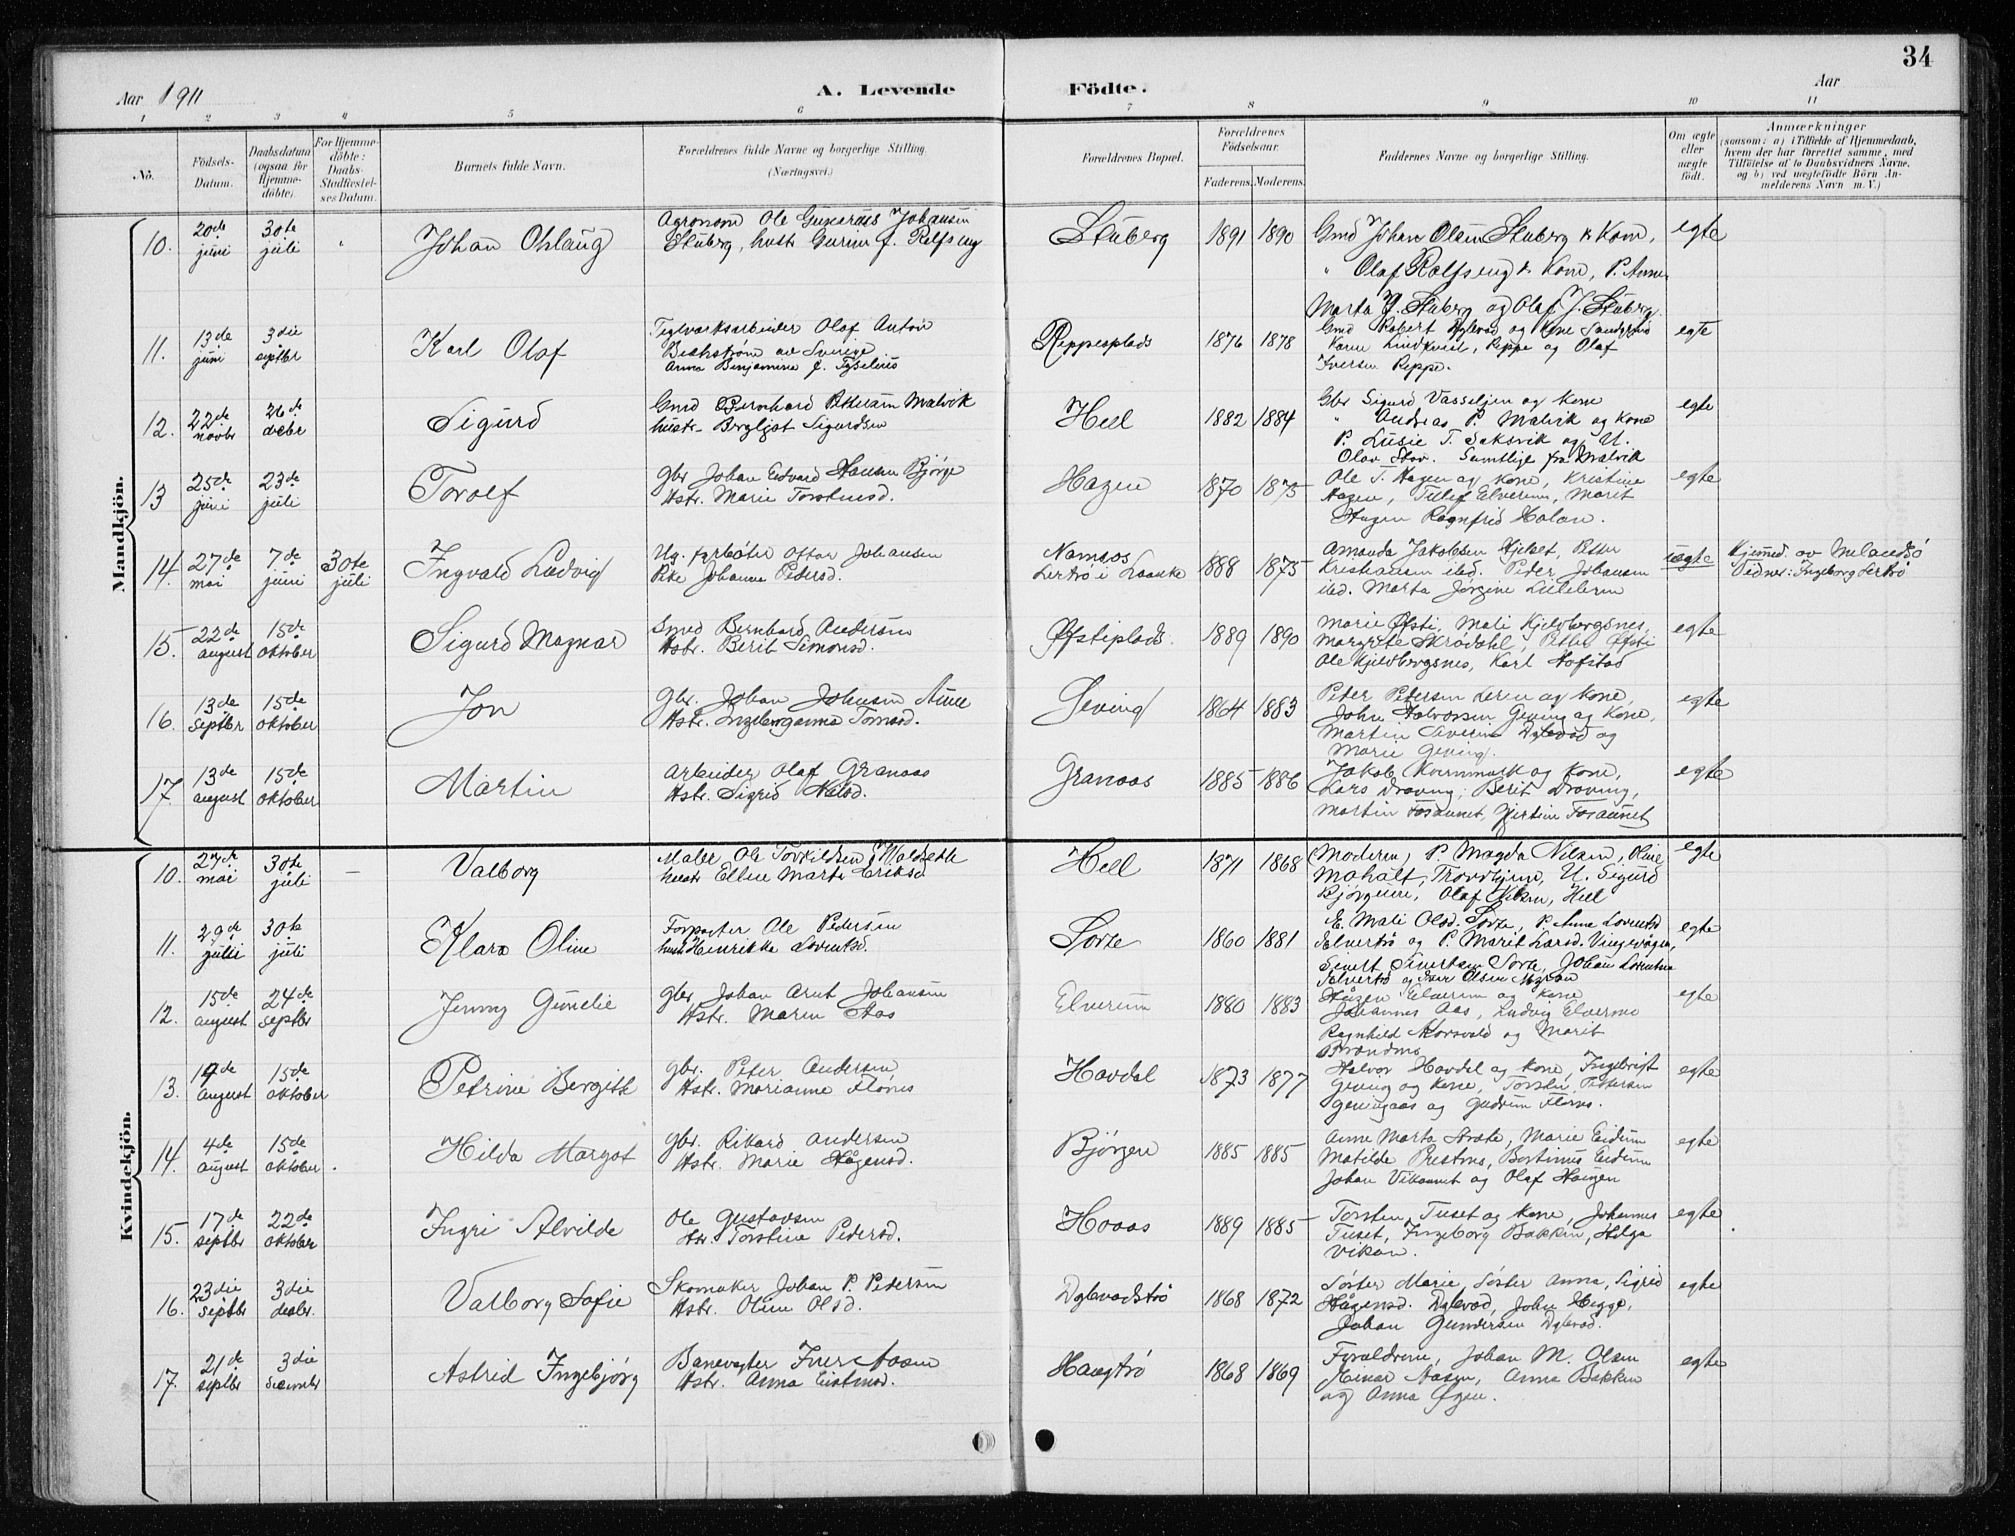 34
Aar 1911
A. Levende Födte.
Aar
1 2 3 4 5 6 7 8 9 10 11
No.
Födsels-Datum.
Daabsdatum (ogsaa for Hjemmedöbte).
For Hjemmedöbte: Daabs-Stadfæstelses Datum.
Barnets fulde Navn.
Forældrenes fulde Navne og borgerlige Stilling. (Næringsvei.)
Forældrenes Bopæl.
Forældrenes Födselsaar.
Faderens. Moderens.
Faddernes Navne og borgerlige Stilling.
Om ægte eller uægte födt.
Anmærkninger
(saasom: a) i Tilfælde af Hjemmedaab, hvem der har forrettet samme, med Tilföielse af to Daabsvidners Navne, og b) ved uægtefödte Börn Anmelderens Navn m. V.)
Mandkjön.
10. 20de juni 30te juli " Johan Ohlaug
Agronom Ole Gunerius Johansen
Stuberg, hustr Gurine f. Rolfseng
Stuberg 1891 1890
Gmd Johan Olsen Stuberg & Kone,
" Olaf Rolfseng & Kone, P. Anne
Marta J. Stuberg og Olaf J. Stuberg.
egte
11. 13de juni 3die septbr Karl Olaf
Teglværksarbeider Olaf Anton
av Sverige
Anna Benjamine f.
Reppesplads 1876 1878
Gmd Robert Dylevad og Kone
Karen Lindkvist, Reppe og Olaf
Iversen Reppe.
egte
12. 22de novbr 26de decbr Sigurd
Gmd Bernhard Pettersen Malvik
hustr Bergljot Sigurdsen
Hell 1882 1884
Gbr Sigurd Vasseljen og kone
" Andreas P. Malvik og Kone
P. Lusie T. Saksvik og U.
Olav Stav. Samtlige fra Malvik
egte
13 25de juni 23de juli Torolf
gbr Johan Edvard Hansen Bjørge
Hstr. Marie Torstensd.
Hagen 1870 1875
Ole T. Hagen og Kone, Kristine
Hagen, Tellef Elverum, Marit
Hagen Ragnfrid Holan.
egte
14. 27de mai 7de juni 30te juli Ingvald Ludvig
Ug. fyrbøter Ottar Johansen
Pike Johanne Pedersd.
Namsos
Lertrø i Laanke 1888 1875
Amanda Jakobsen Petter
Kristiansen ibd. Peder Johansen
ibd. Marta Jørgine
uægte
Hjemmed. av
Vidner: Ingeborg Lertrø
15. 22de august 15de oktober Sigurd Magnar
Smed Bernhard Andersen
Hstr. Berit Simonsd.
Øfstiplads. 1889 1890
Marie Øfsti, Mali Kjeldbergsnes,
Margrete Skrødahl, Petter Øfsti
Ole Kjeldbergsnes, Karl Hofstad
egte
16. 13de septbr 15de oktober Jon
Gbr. Johan Johnsen Aune
Hstr. Ingeborganna Tomasd.
Geving 1864 1883
Peter Petersen Leren og Kone
John Halvorsen Geving og Kone,
Martin Severin Dylevad og
Marie Geving.
egte
17 13de august 15de oktober Martin
Arbeider Olaf Granaas
Hstr. Sigrid Nilsd.
Granaas 1885 1886
Jakob Kvernmark og Kone,
Lars Draving, Berit Draving,
Martin Fosaunet, Fosaunet
egte
Kvindekjön.
10. 27de mai 30te juli — Valborg
Maler Ole Torkildsen
hustr Ellen Marta Eriksd
Hell 1871 1868
(Moderen) P. Magda Nilsen, Oline
Trondhjem, U. Sigurd
Bjørgum, Olaf Nilsen, Hell
egte
11. 29de juli 30te juli Klara Oline
Forpagter Ole Pedersen
hustr Henrikke Lorentsd.
Sorte 1860 1881
E. Mali Olsd. Sorte, P. Anne Lorentsd
og P. Marit Larsd.
Sivert Sivertsen Sorte, Johan Lorentsen
og Iver Olsen
egte
12. 15de august 24de septbr Jenny Gunelie
gbr. Johan Arnt Johansen
Hstr. Maren Aas
Elverum 1880 1883
Haagen Elverum og Kone
Johannes Aas, Ludvig Elverum
Ragnhild Korsvold og Marit
egte
13. 19de august 15de oktober Petrine Bergithe
gbr. Peter Andersen
Hstr. Marianne Flønes
Havdal 1873 1877
Halvor Havdal og Kone, Ingebrigt
Geving og Kone, Torsten Pettersen
Gevingaas og Gudrun Flønes.
egte
14. 4de august 15de oktober Hilda Margot
gbr. Rikard Andersen
Hstr. Marie Haagensd.
Bjørgen 1885 1885
Anne Marta Stræte, Marie Eidum
Matilde Prestmo, Bertinus Eidum
Johan Vikaunet og Olaf Haugen
egte
15. 17de septbr 22de oktober Ingri Alvilde
Ole Gustavsen
Hstr. Torstine Pedersd.
Hovas 1889 1885
Torsten Tuset og Kone, Johannes
Tuset, Ingeborg Bakken, Helga
Vikan.
egte
16. 23die septbr 3die decbr. Valborg Sofie
Skomaker Johan P. Pedersen
Hstr. Oline Olsd.
Dylevadstrø 1868 1872
Søster Marie, Søster Anna, Sigrid
Haagensd. Dylevad, John Hegge,
Johan Gundersen Dylevad.
egte
17. 21de septbr 3die Astrid Ingebjørg
Banevogter Iver Aasen
Hstr. Anna Eistensd.
Haugtrø 1868 1869
Forældrene, Johan M. Olsen
Einar Aasen, Anna Bakken
og Anna Øyen.
egte